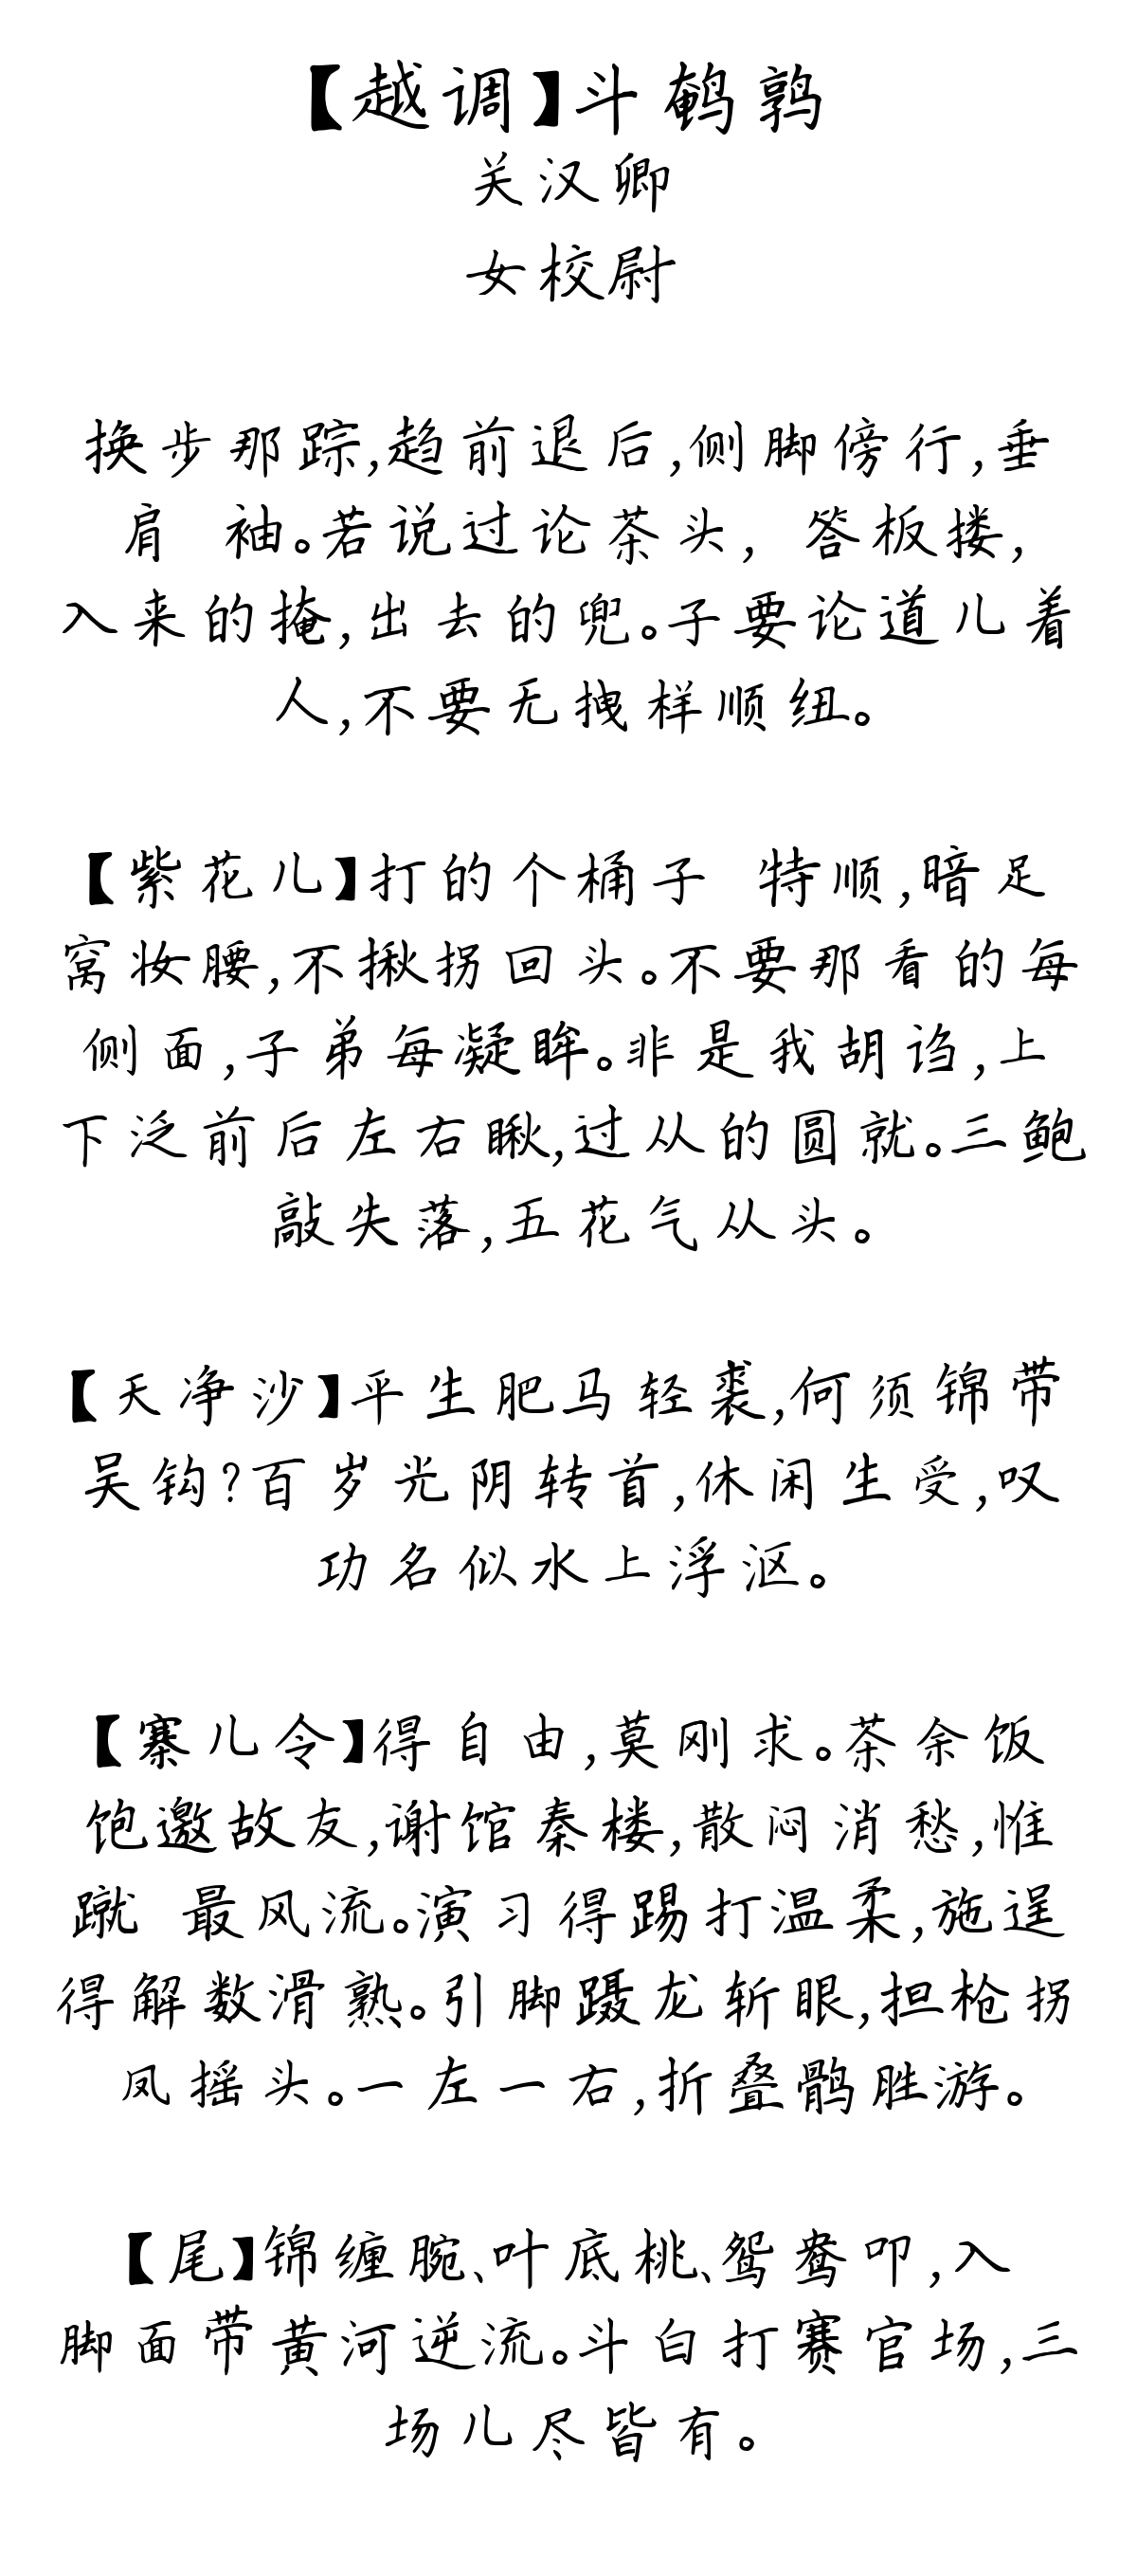 【越调】斗鹌鹑
关汉卿
女校尉
换步那踪,趋前退后,侧脚傍行,垂
肩 袖。若说过论茶头, 答板搂,
入来的掩,出去的兜。子要论道儿着
人,不要无拽样顺纽。
【紫花儿】打的个桶子 特顺,暗足
窝妆腰,不揪拐回头。不要那看的每
侧面,子弟每凝眸。非是我胡诌,上
下泛前后左右瞅,过从的圆就。三鲍
敲失落,五花气从头。
【天净沙】平生肥马轻裘,何须锦带
吴钩?百岁光阴转首,休闲生受,叹
功名似水上浮沤。
【寨儿令】得自由,莫刚求。茶余饭
饱邀故友,谢馆秦楼,散闷消愁,惟
蹴 最风流。演习得踢打温柔,施逞
得解数滑熟。引脚蹑龙斩眼,担枪拐
凤摇头。一左一右,折叠鹘胜游。
【尾】锦缠腕、叶底桃、鸳鸯叩,入
脚面带黄河逆流。斗白打赛官场,三
场儿尽皆有。